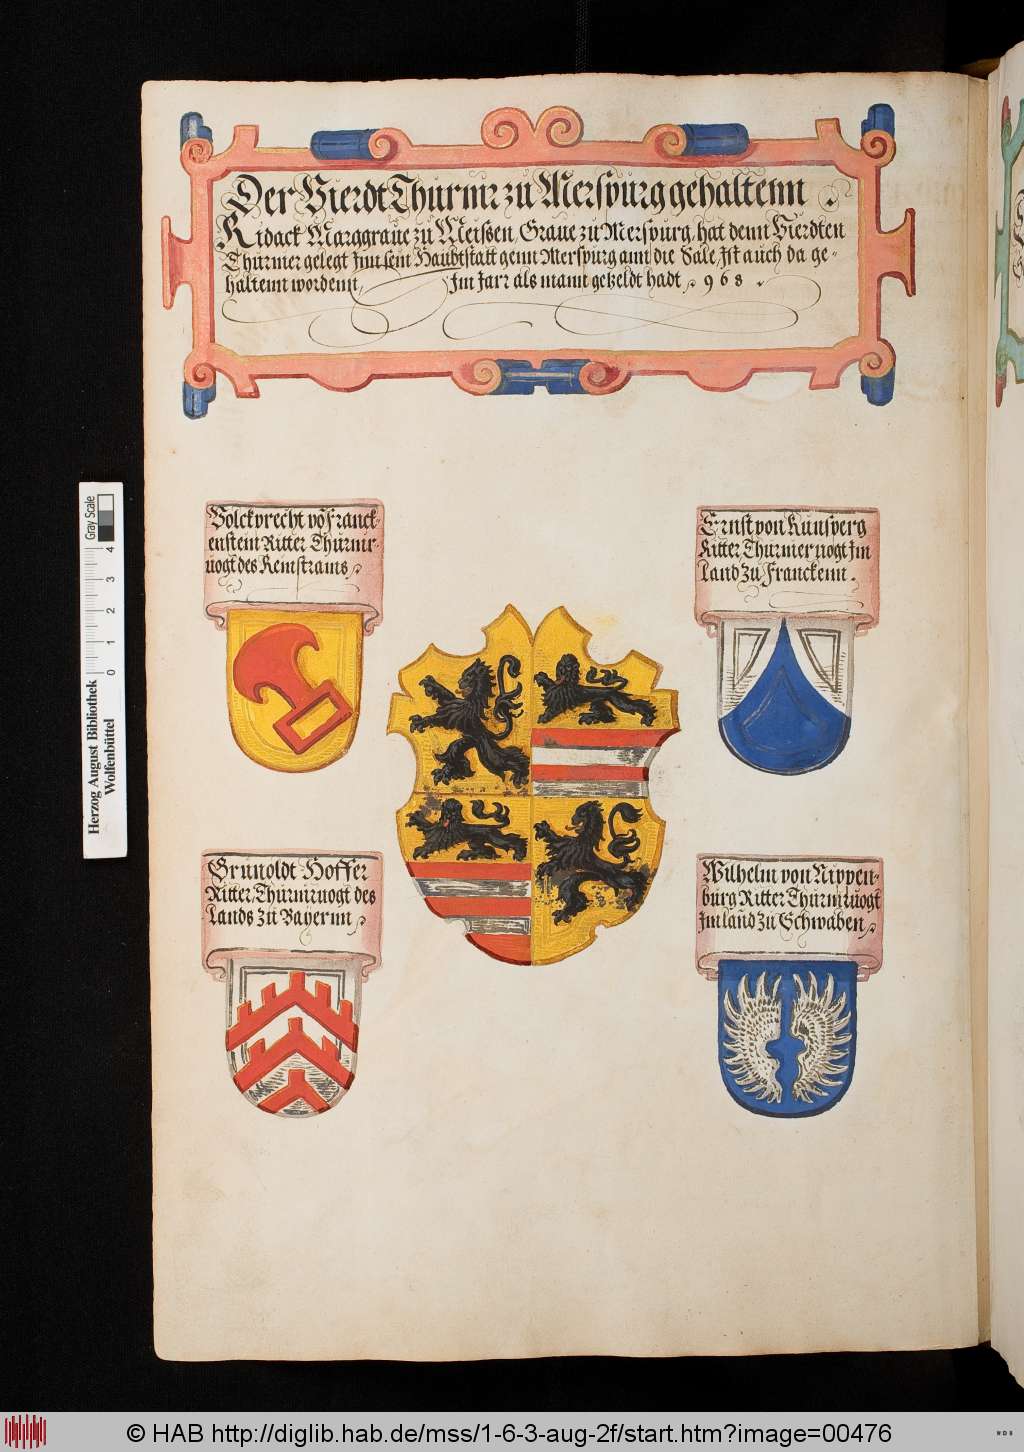 Der Vierdt Thurnir zu Merspurg gehaltenn .
Ridack Marggraue zu Meissen, Graue zu Merspurg, hat denn Vierdten
Thurnier gelegt Inn sein Haubtstatt genn Merspurg ann die Sale, Ist auch da ge-
haltenn wordenn, Im Jarr als mann gezeldt hadt , 968 .
Volckprecht vō Franck-
enstein Ritter Thurnir-
uogt des Reinstrams,
Ernst von Kunsperg
Ritter Thurnier uogt Im
land zu Franckenn .
Grunoldt Hoffer
Ritter, Thurniruogt des
lands zu Bayernn ,
Wilhelm von Nippen-
burg Ritter Thurniruogt
Im land zu Schwaben ,
Herzog August Bibliothek
Wolfenbüttel
0 1 2 3 4
Gray Scale
© HAB http://diglib.hab.de/mss/1-6-3-aug-2f/start.htm?image=00476
WDB